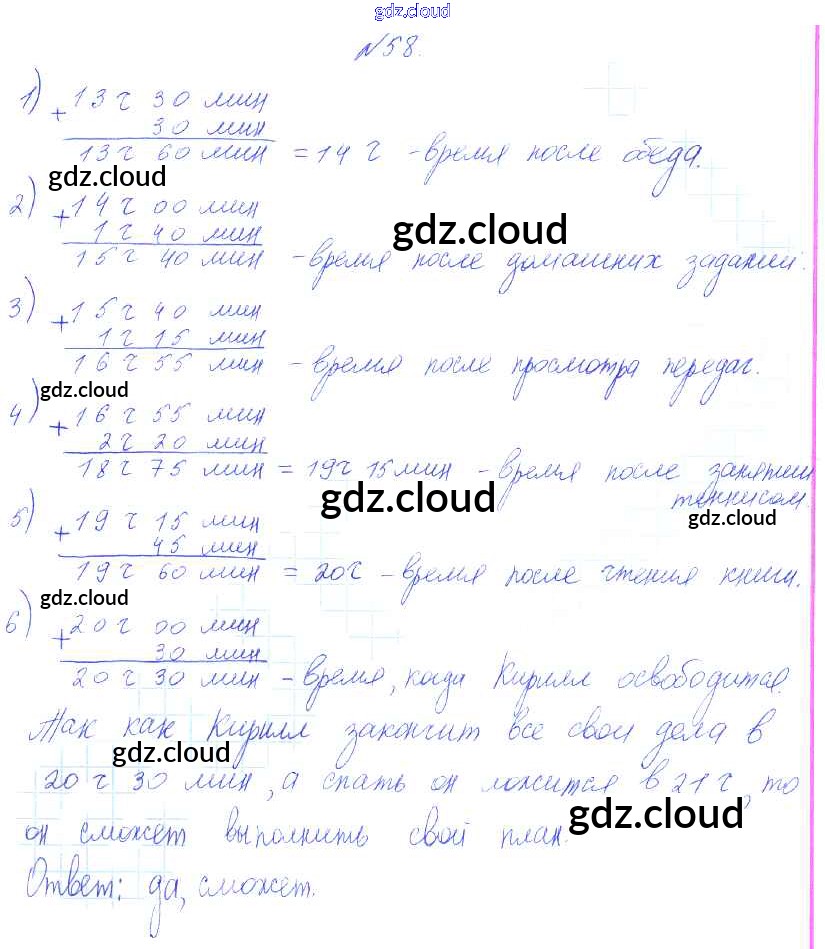 gdz.cloud
№58.
1) + 13 ч 30 мин
30 мин
13 ч 60 мин = 14 ч - время после обеда.
gdz.cloud
2) + 14 ч 00 мин
1 ч 40 мин
gdz.cloud
15 ч 40 мин - время после домашних заданий.
3) + 15 ч 40 мин
1 ч 15 мин
16 ч 55 мин - время после просмотра передач.
gdz.cloud
4) + 16 ч 55 мин
2 ч 20 мин
18 ч 75 мин = 19 ч 15 мин - время после занятий
теннисом.
gdz.cloud
gdz.cloud
5) + 19 ч 15 мин
45 мин
19 ч 60 мин = 20 ч - время после чтения книги.
gdz.cloud
6) + 20 ч 00 мин
30 мин
20 ч 30 мин - время, когда Кирилл освободится.
Так как Кирилл закончит все свои дела в
gdz.cloud
20 ч 30 мин, а спать он ложится в 21 ч, то
gdz.cloud
он сможет выполнить свой план.
Ответ: да, сможет.